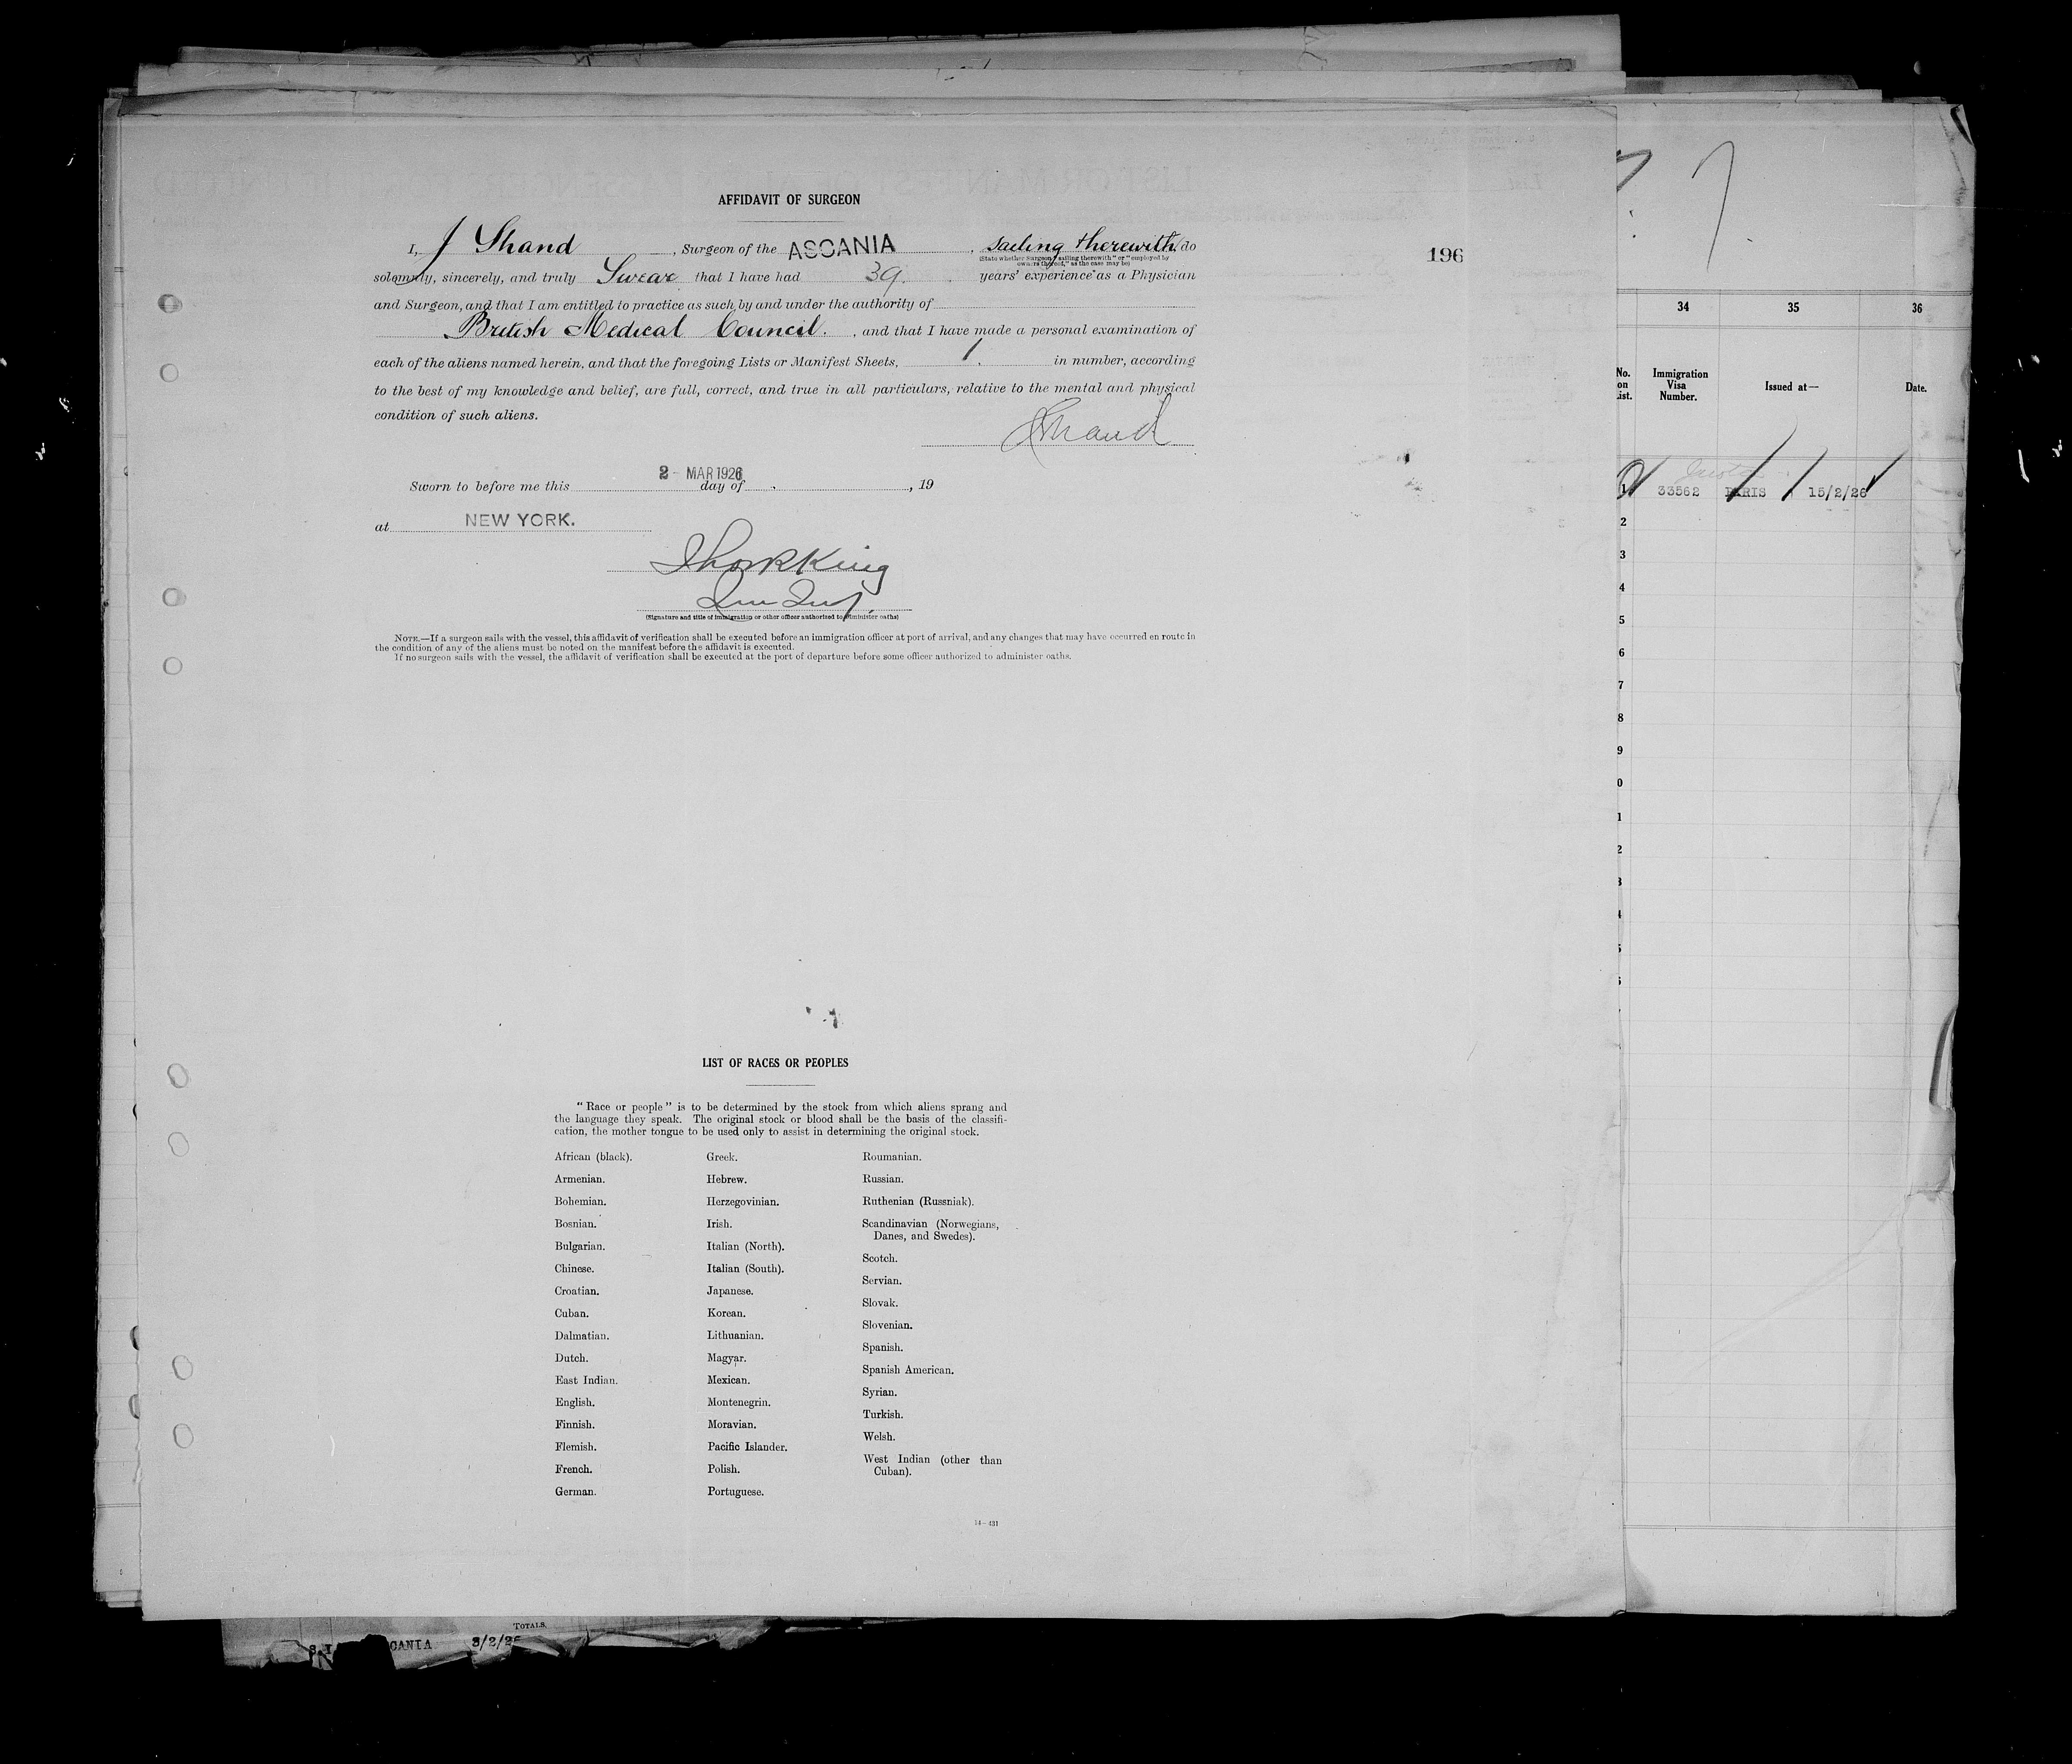 AFFIDAVIT OF SURGEON
I, J Shand, Surgeon of the ASCANIA, sailing therewith, do
(State whether Surgeon "sailing therewith" or "employed by owners thereof," as the case may be)
solemnly, sincerely, and truly Swear that I have had 39. years' experience as a Physician
and Surgeon, and that I am entitled to practice as such by and under the authority of
British Medical Council. , and that I have made a personal examination of
each of the aliens named herein, and that the foregoing Lists or Manifest Sheets, 1. in number, according
to the best of my knowledge and belief, are full, correct, and true in all particulars, relative to the mental and physical
condition of such aliens.
JShand
Sworn to before me this 2 - MAR 1926 day of , 19
at NEW YORK.
King
(Signature and title of immigration or other officer authorized to administer oaths)
NOTE.—If a surgeon sails with the vessel, this affidavit of verification shall be executed before an immigration officer at port of arrival, and any changes that may have occurred en route in
the condition of any of the aliens must be noted on the manifest before the affidavit is executed.
If no surgeon sails with the vessel, the affidavit of verification shall be executed at the port of departure before some officer authorized to administer oaths.
196
LIST OF RACES OR PEOPLES
"Race or people" is to be determined by the stock from which aliens sprang and
the language they speak. The original stock or blood shall be the basis of the classifi-
cation, the mother tongue to be used only to assist in determining the original stock.
African (black).
Armenian.
Bohemian.
Bosnian.
Bulgarian.
Chinese.
Croatian.
Cuban.
Dalmatian.
Dutch.
East Indian.
English.
Finnish.
Flemish.
French.
German.
Greek.
Hebrew.
Herzegovinian.
Irish.
Italian (North).
Italian (South).
Japanese.
Korean.
Lithuanian.
Magyar.
Mexican.
Montenegrin.
Moravian.
Pacific Islander.
Polish.
Portuguese.
Roumanian.
Russian.
Ruthenian (Russniak).
Scandinavian (Norwegians,
Danes, and Swedes).
Scotch.
Servian.
Slovak.
Slovenian.
Spanish.
Spanish American.
Syrian.
Turkish.
Welsh.
West Indian (other than
Cuban).
14—431
34 35 36
No. on List.
Immigration Visa Number.
Issued at—
Date.
1 33562 PARIS 15/2/26
2
3
4
5
6
7
8
9
0
1
2
3
4
5
6
TOTALS.
CANIA 3/2/26